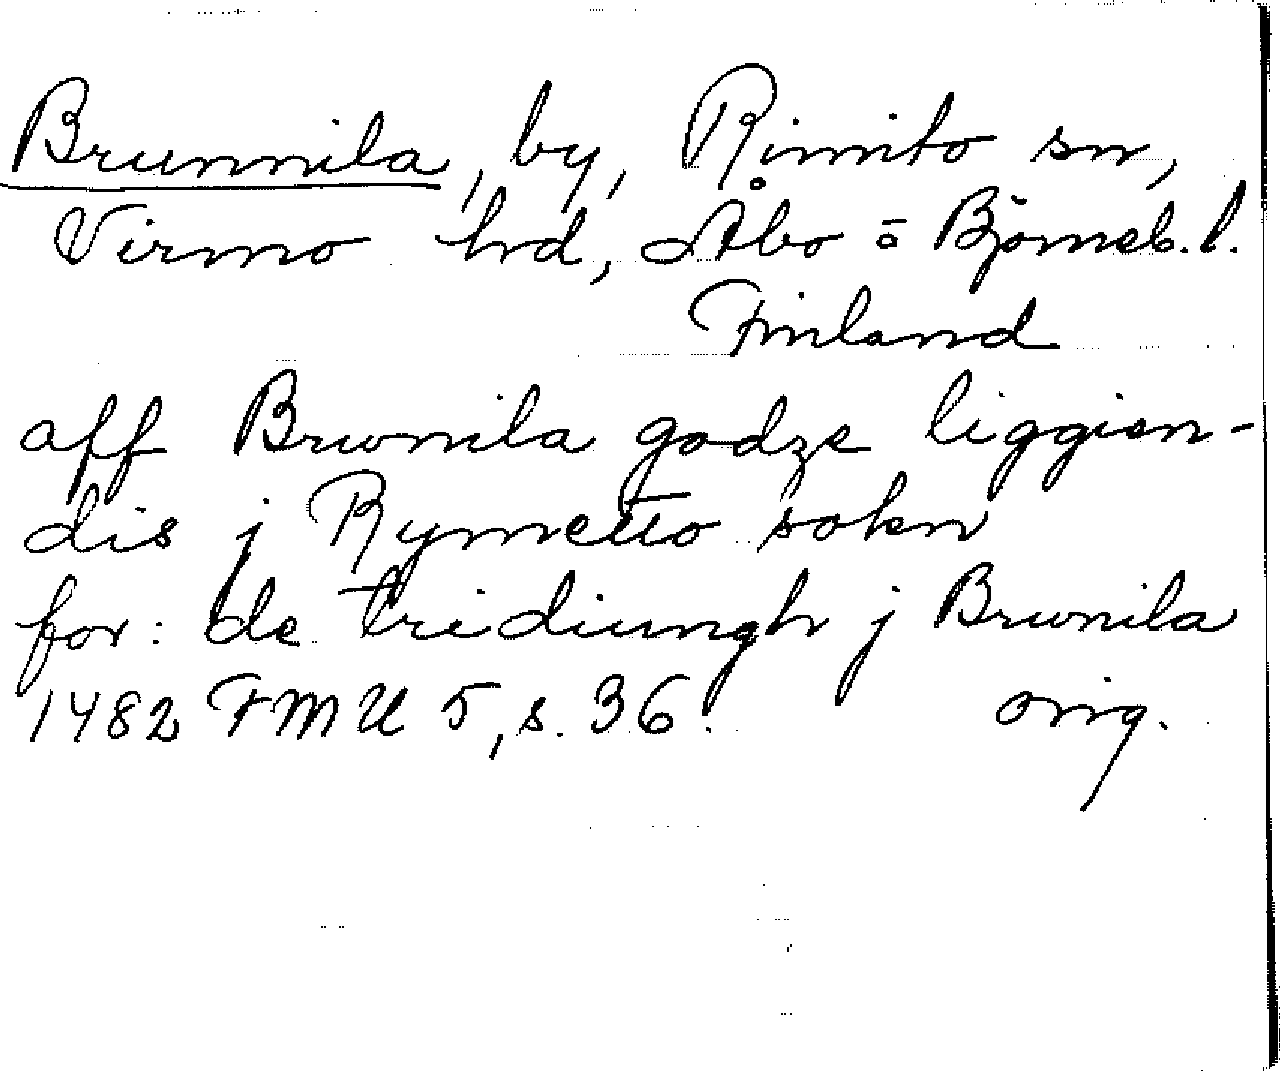 Brunnila, by, Rimito sn,
Virmo hd, Åbo o Björneb. l.
Finland
aff Brwnila godze liggien-
dis j Rymetto sokn
for: de tridiungh j Brwnila
1482 FMU 5, s. 36. orig.